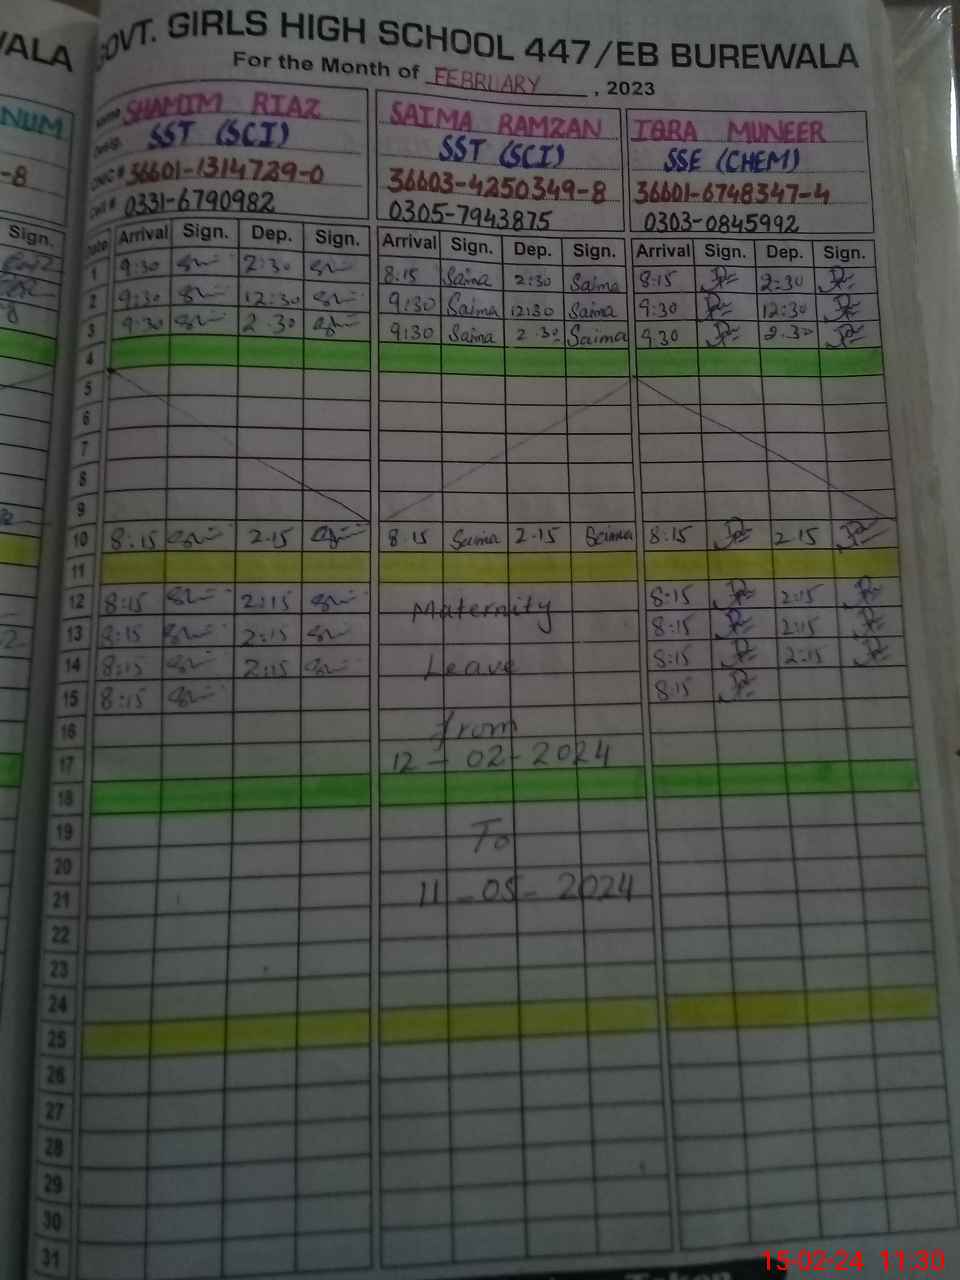 GOVT. GIRLS HIGH SCHOOL 447/EB BUREWALA
For the Month of FEBRUARY, 2023
WALA
NUM
-8
Sign.
Name SHAMIM RIAZ SAIMA RAMZAN IQRA MUNEER
Desig. SST (SCI) SST (SCI) SSE (CHEM)
CNIC # 36601-1314729-0 36603-4250349-8 36601-6748347-4
Cell # 0331-6790982 0305-7943875 0303-0845992
Date Arrival Sign. Dep. Sign. Arrival Sign. Dep. Sign. Arrival Sign. Dep. Sign.
1 9:30 2:30 8:15 Saima 2:30 Saima 8:15 2:30
2 9:30 12:30 9:30 Saima 12:30 Saima 9:30 12:30
3 9:30 2.30 9:30 Saima 2.30 Saima 9.30 2.30
4
5
6
7
8
9
10 8:15 2.15 8.15 Saima 2.15 Saima 8:15 2.15
11
12 8:15 2:15 Maternity 8:15 2:15
13 8:15 2:15 8:15 2:15
14 8:15 2:15 Leave 8:15 2:15
15 8:15 8:15
16 from
17 12-02-2024
18
19 To
20
21 11-05-2024
22
23
24
25
26
27
28
29
30
31
15-02-24 11:30